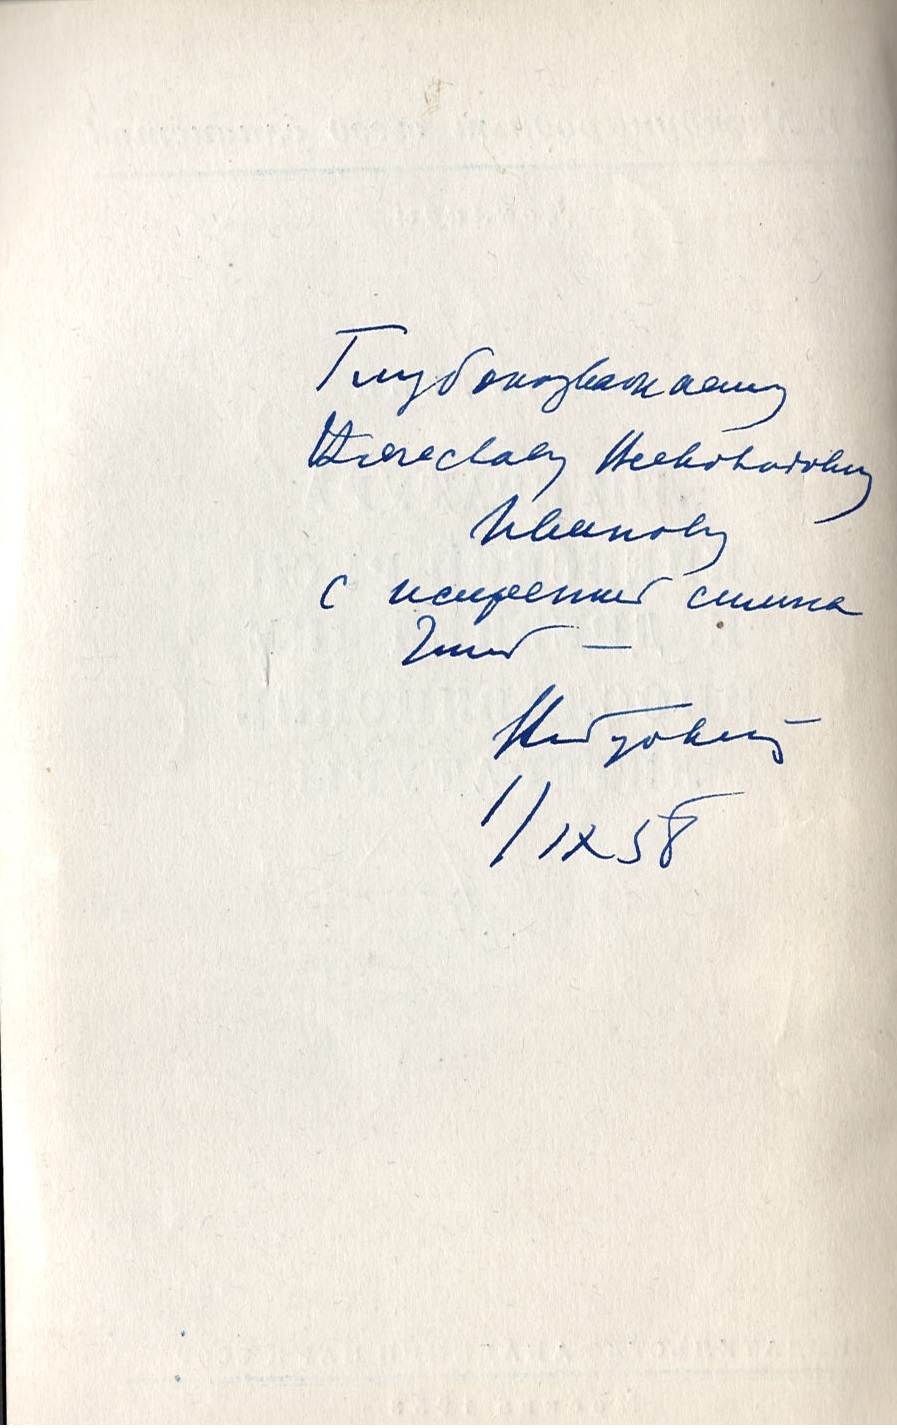 Глубокоуважаемому
Вячеславу Всеволодовичу
Иванову
с искренней симпа
тией —
1/IX 58